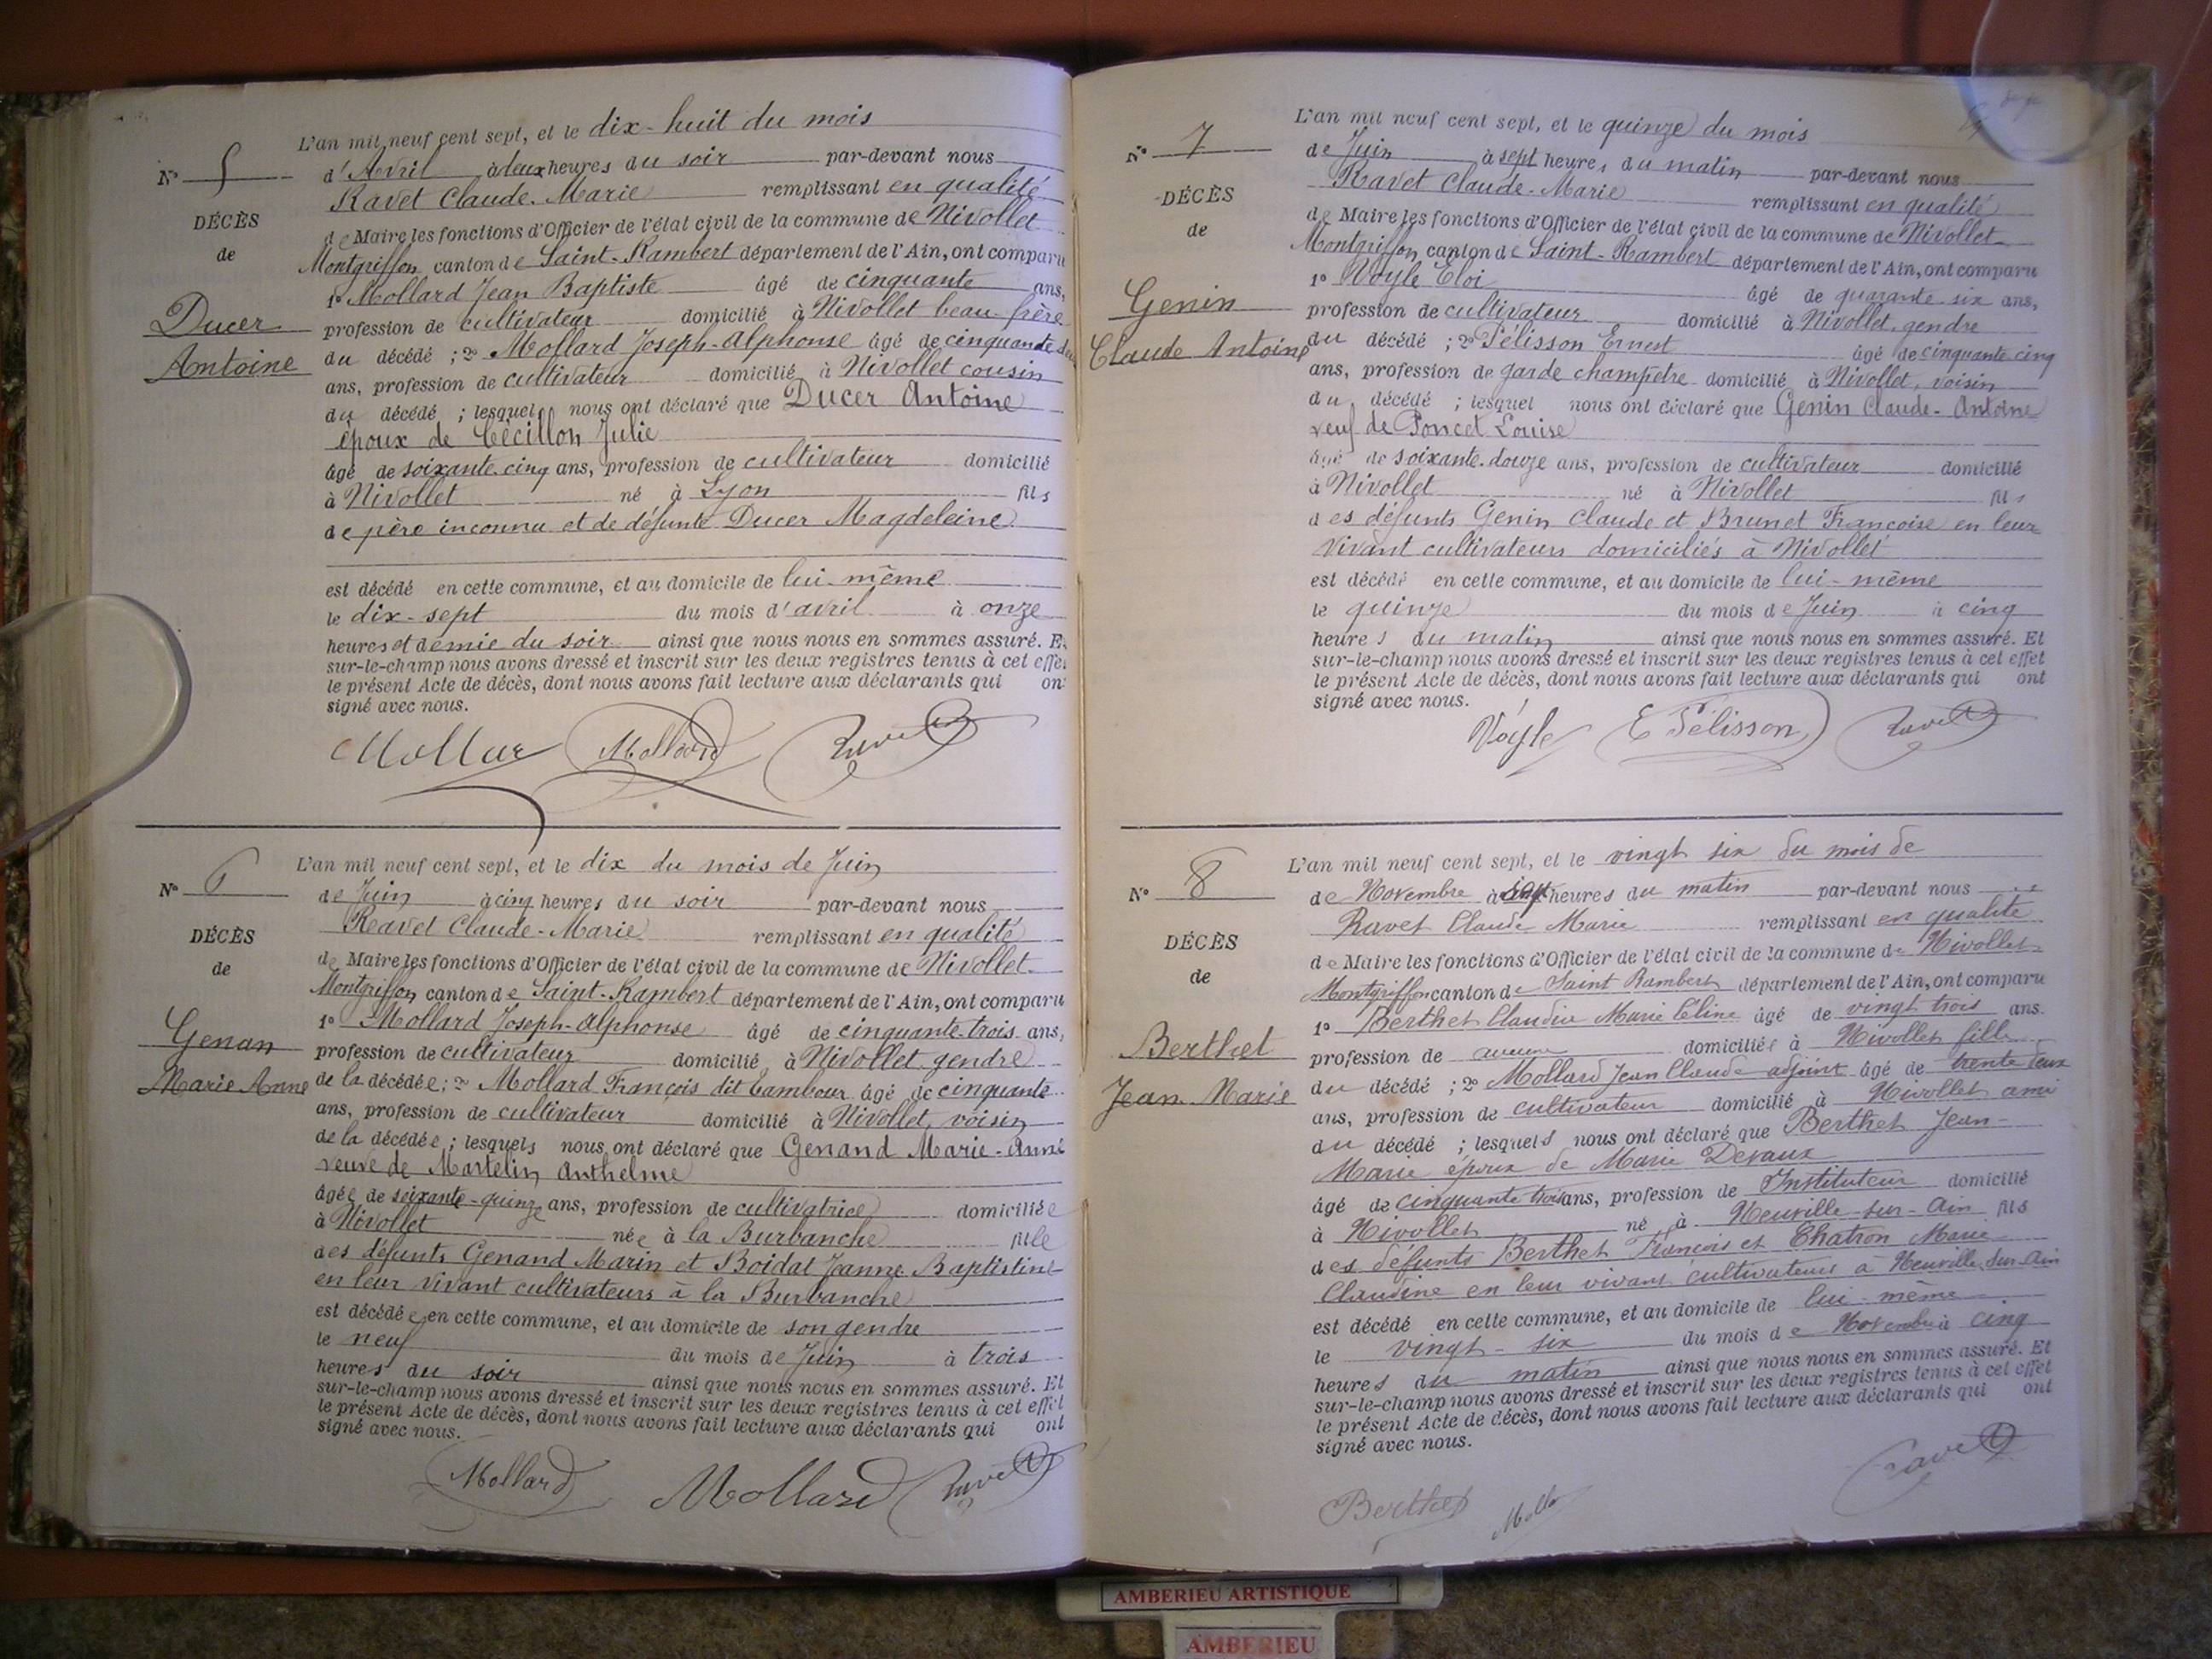 N° 5
DÉCÈS
de
Ducer
Antoine
L'an mil neuf cent sept, et le dix-huit du mois
d'Avril à deux heures du soir par-devant nous
Ravet Claude-Marie remplissant en qualité
de Maire les fonctions d'Officier de l'état civil de la commune de Nivollet
Montgriffon canton de Saint-Rambert département de l'Ain, ont comparu
1° Mollard Jean Baptiste âgé de cinquante ans,
profession de cultivateur domicilié à Nivollet beau-frère
du décédé ; 2° Mollard Joseph-Alphonse âgé de cinquante
ans, profession de cultivateur domicilié à Nivollet cousin
du décédé ; lesquel nous ont déclaré que Ducer Antoine
époux de Cécillon Julie
âgé de soixante-cinq ans, profession de cultivateur domicilié
à Nivollet né à Lyon fils
de père inconnu et de défunte Ducer Magdeleine
est décédé en cette commune, et au domicile de lui-même
le dix-sept du mois d'avril à onze
heures et demie du soir ainsi que nous nous en sommes assuré. Et
sur-le-champ nous avons dressé et inscrit sur les deux registres tenus à cet effet
le présent Acte de décès, dont nous avons fait lecture aux déclarants qui ont
signé avec nous.
Mollar Mollard Ravet
N° 6
DÉCÈS
de
Genan
Marie Anne
L'an mil neuf cent sept, et le dix du mois de Juin
de Juin à cinq heures du soir par-devant nous
Ravet Claude-Marie remplissant en qualité
de Maire les fonctions d'Officier de l'état civil de la commune de Nivollet
Montgriffon canton de Saint-Rambert département de l'Ain, ont comparu
1° Mollard Joseph-Alphonse âgé de cinquante-trois ans,
profession de cultivateur domicilié à Nivollet, gendre
de la décédée ; 2° Mollard François dit Tambour âgé de cinquante
ans, profession de cultivateur domicilié à Nivollet, voisin
de la décédée ; lesquels nous ont déclaré que Genand Marie-Anne
veuve de Martelin Anthelme
âgée de soixante-quinze ans, profession de cultivatrice domiciliée
à Nivollet née à la Burbanche fille
des défunts Genand Marin et Boidat Jeanne Baptistine
en leur vivant cultivateurs à la Burbanche
est décédée en cette commune, et au domicile de son gendre
le neuf du mois de Juin à trois
heures du soir ainsi que nous nous en sommes assuré. Et
sur-le-champ nous avons dressé et inscrit sur les deux registres tenus à cet effet
le présent Acte de décès, dont nous avons fait lecture aux déclarants qui ont
signé avec nous.
Mollard Mollard Ravet
N° 7
DÉCÈS
de
Genin
Claude Antoine
L'an mil neuf cent sept, et le quinze du mois
de Juin à sept heures du matin par-devant nous
Ravet Claude-Marie remplissant en qualité
de Maire les fonctions d'Officier de l'état civil de la commune de Nivollet
Montgriffon canton de Saint-Rambert département de l'Ain, ont comparu
1° Voyle Eloi âgé de quarante-six ans,
profession de cultivateur domicilié à Nivollet, gendre
du décédé ; 2° Pélisson Ernest âgé de cinquante-cinq
ans, profession de garde champetre domicilié à Nivollet, voisin
du décédé ; lesquel nous ont déclaré que Genin Claude-Antoine
veuf de Poncet Louise
âgé de soixante-douze ans, profession de cultivateur domicilié
à Nivollet né à Nivollet fils
des défunts Genin Claude et Brunet Françoise en leur
vivant cultivateurs domiciliés à Nivollet
est décédé en cette commune, et au domicile de lui-même
le quinze du mois de Juin à cinq
heures du matin ainsi que nous nous en sommes assuré. Et
sur-le-champ nous avons dressé et inscrit sur les deux registres tenus à cet effet
le présent Acte de décès, dont nous avons fait lecture aux déclarants qui ont
signé avec nous.
Voyle E Pélisson Ravet
N° 8
DÉCÈS
de
Berthet
Jean-Marie
L'an mil neuf cent sept, et le vingt six du mois de
de Novembre à heures du matin par-devant nous
Ravet Claude Marie remplissant en qualité
de Maire les fonctions d'Officier de l'état civil de la commune de Nivollet
Montgriffon canton de Saint Rambert département de l'Ain, ont comparu
1° Berthet Claudia Marie Céline âgé de vingt trois ans.
profession de aucune domiciliée à Nivollet fille
du décédé ; 2° Mollard Jean Claude adjoint âgé de trente deux
ans, profession de cultivateur domicilié à Nivollet ami
du décédé ; lesquels nous ont déclaré que Berthet Jean-
Marie époux de Marie Devaux
âgé de cinquante trois ans, profession de Instituteur domicilié
à Nivollet né à Neuville-sur-Ain fils
des défunts Berthet François et Chatron Marie
Claudine en leur vivant cultivateurs à Neuville sur Ain
est décédé en cette commune, et au domicile de lui-même
le vingt-six du mois de Novembre à cinq
heures du matin ainsi que nous nous en sommes assuré. Et
sur-le-champ nous avons dressé et inscrit sur les deux registres tenus à cet effet
le présent Acte de décès, dont nous avons fait lecture aux déclarants qui ont
signé avec nous.
Berthet Ravet
AMBERIEU ARTISTIQUE
AMBERIEU